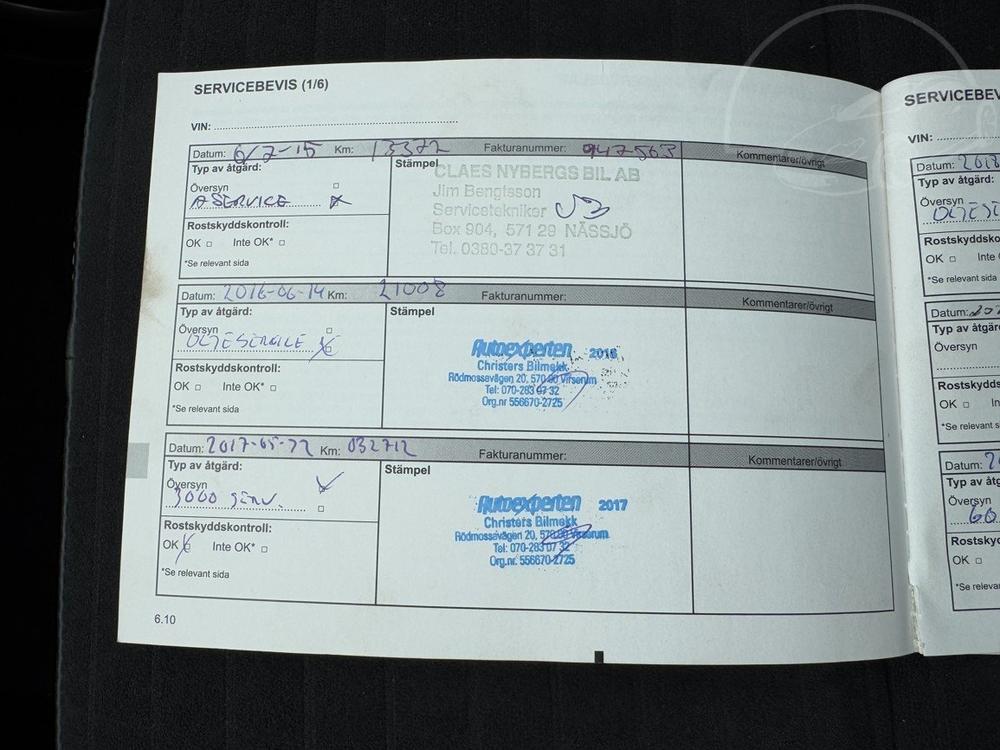 SERVICEBEVIS (1/6)
VIN:
Datum: 6/7-15 Km: 13372 Fakturanummer: 947563 Kommentarer/övrigt
Typ av åtgärd:
Stämpel
Översyn
A SERVICE
CLAES NYBERGS BIL AB
Jim Bengtsson
Servicetekniker
Box 904, 571 29 NÄSSJÖ
Tel. 0380-37 37 31
Rostskyddskontroll:
OK Inte OK*
*Se relevant sida
Datum: 2016-06-14 Km: 21008 Fakturanummer: Kommentarer/övrigt
Typ av åtgärd:
Stämpel
Översyn
OLJESERVICE
Autoexperten 2016
Christers Bilmekk
Rödmossevägen 20, 570 80 Virserum
Tel: 070-283 07 32
Org.nr. 556670-2725
Rostskyddskontroll:
OK Inte OK*
*Se relevant sida
Datum: 2017-05-22 Km: 032712 Fakturanummer: Kommentarer/övrigt
Typ av åtgärd:
Stämpel
Översyn
3000 SERV.
Autoexperten 2017
Christers Bilmekk
Rödmossevägen 20, 570 80 Virserum
Tel: 070-283 07 32
Org.nr. 556670-2725
Rostskyddskontroll:
OK Inte OK*
*Se relevant sida
6.10
SERVICEBEV
VIN:
Datum: 2018
Typ av åtgärd:
Översyn
OLJESE
Rostskyddsko
OK Inte
*Se relevant sida
Datum: 20
Typ av åtgär
Översyn
Rostskydds
OK In
*Se relevant s
Datum: 2
Typ av åtg
Översyn
60
Rostskydd
OK
*Se releva